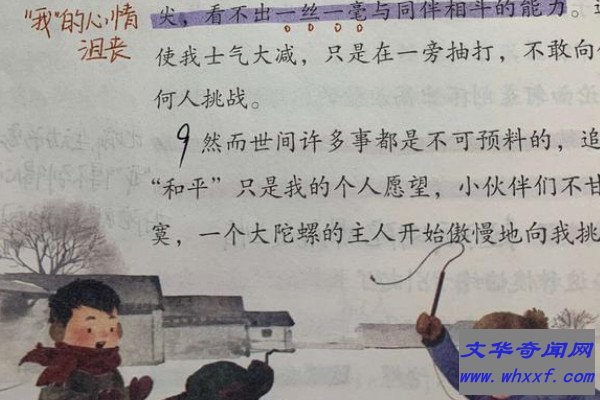 "我"的心情
沮丧
尖，看不出一丝一毫与同伴相斗的能力。
使我士气大减，只是在一旁抽打，不敢向
何人挑战。
9 然而世间许多事都是不可预料的，追
“和平”只是我的个人愿望，小伙伴们不甘
寞，一个大陀螺的主人开始傲慢地向我挑
文华奇闻网
www.whxxf.com